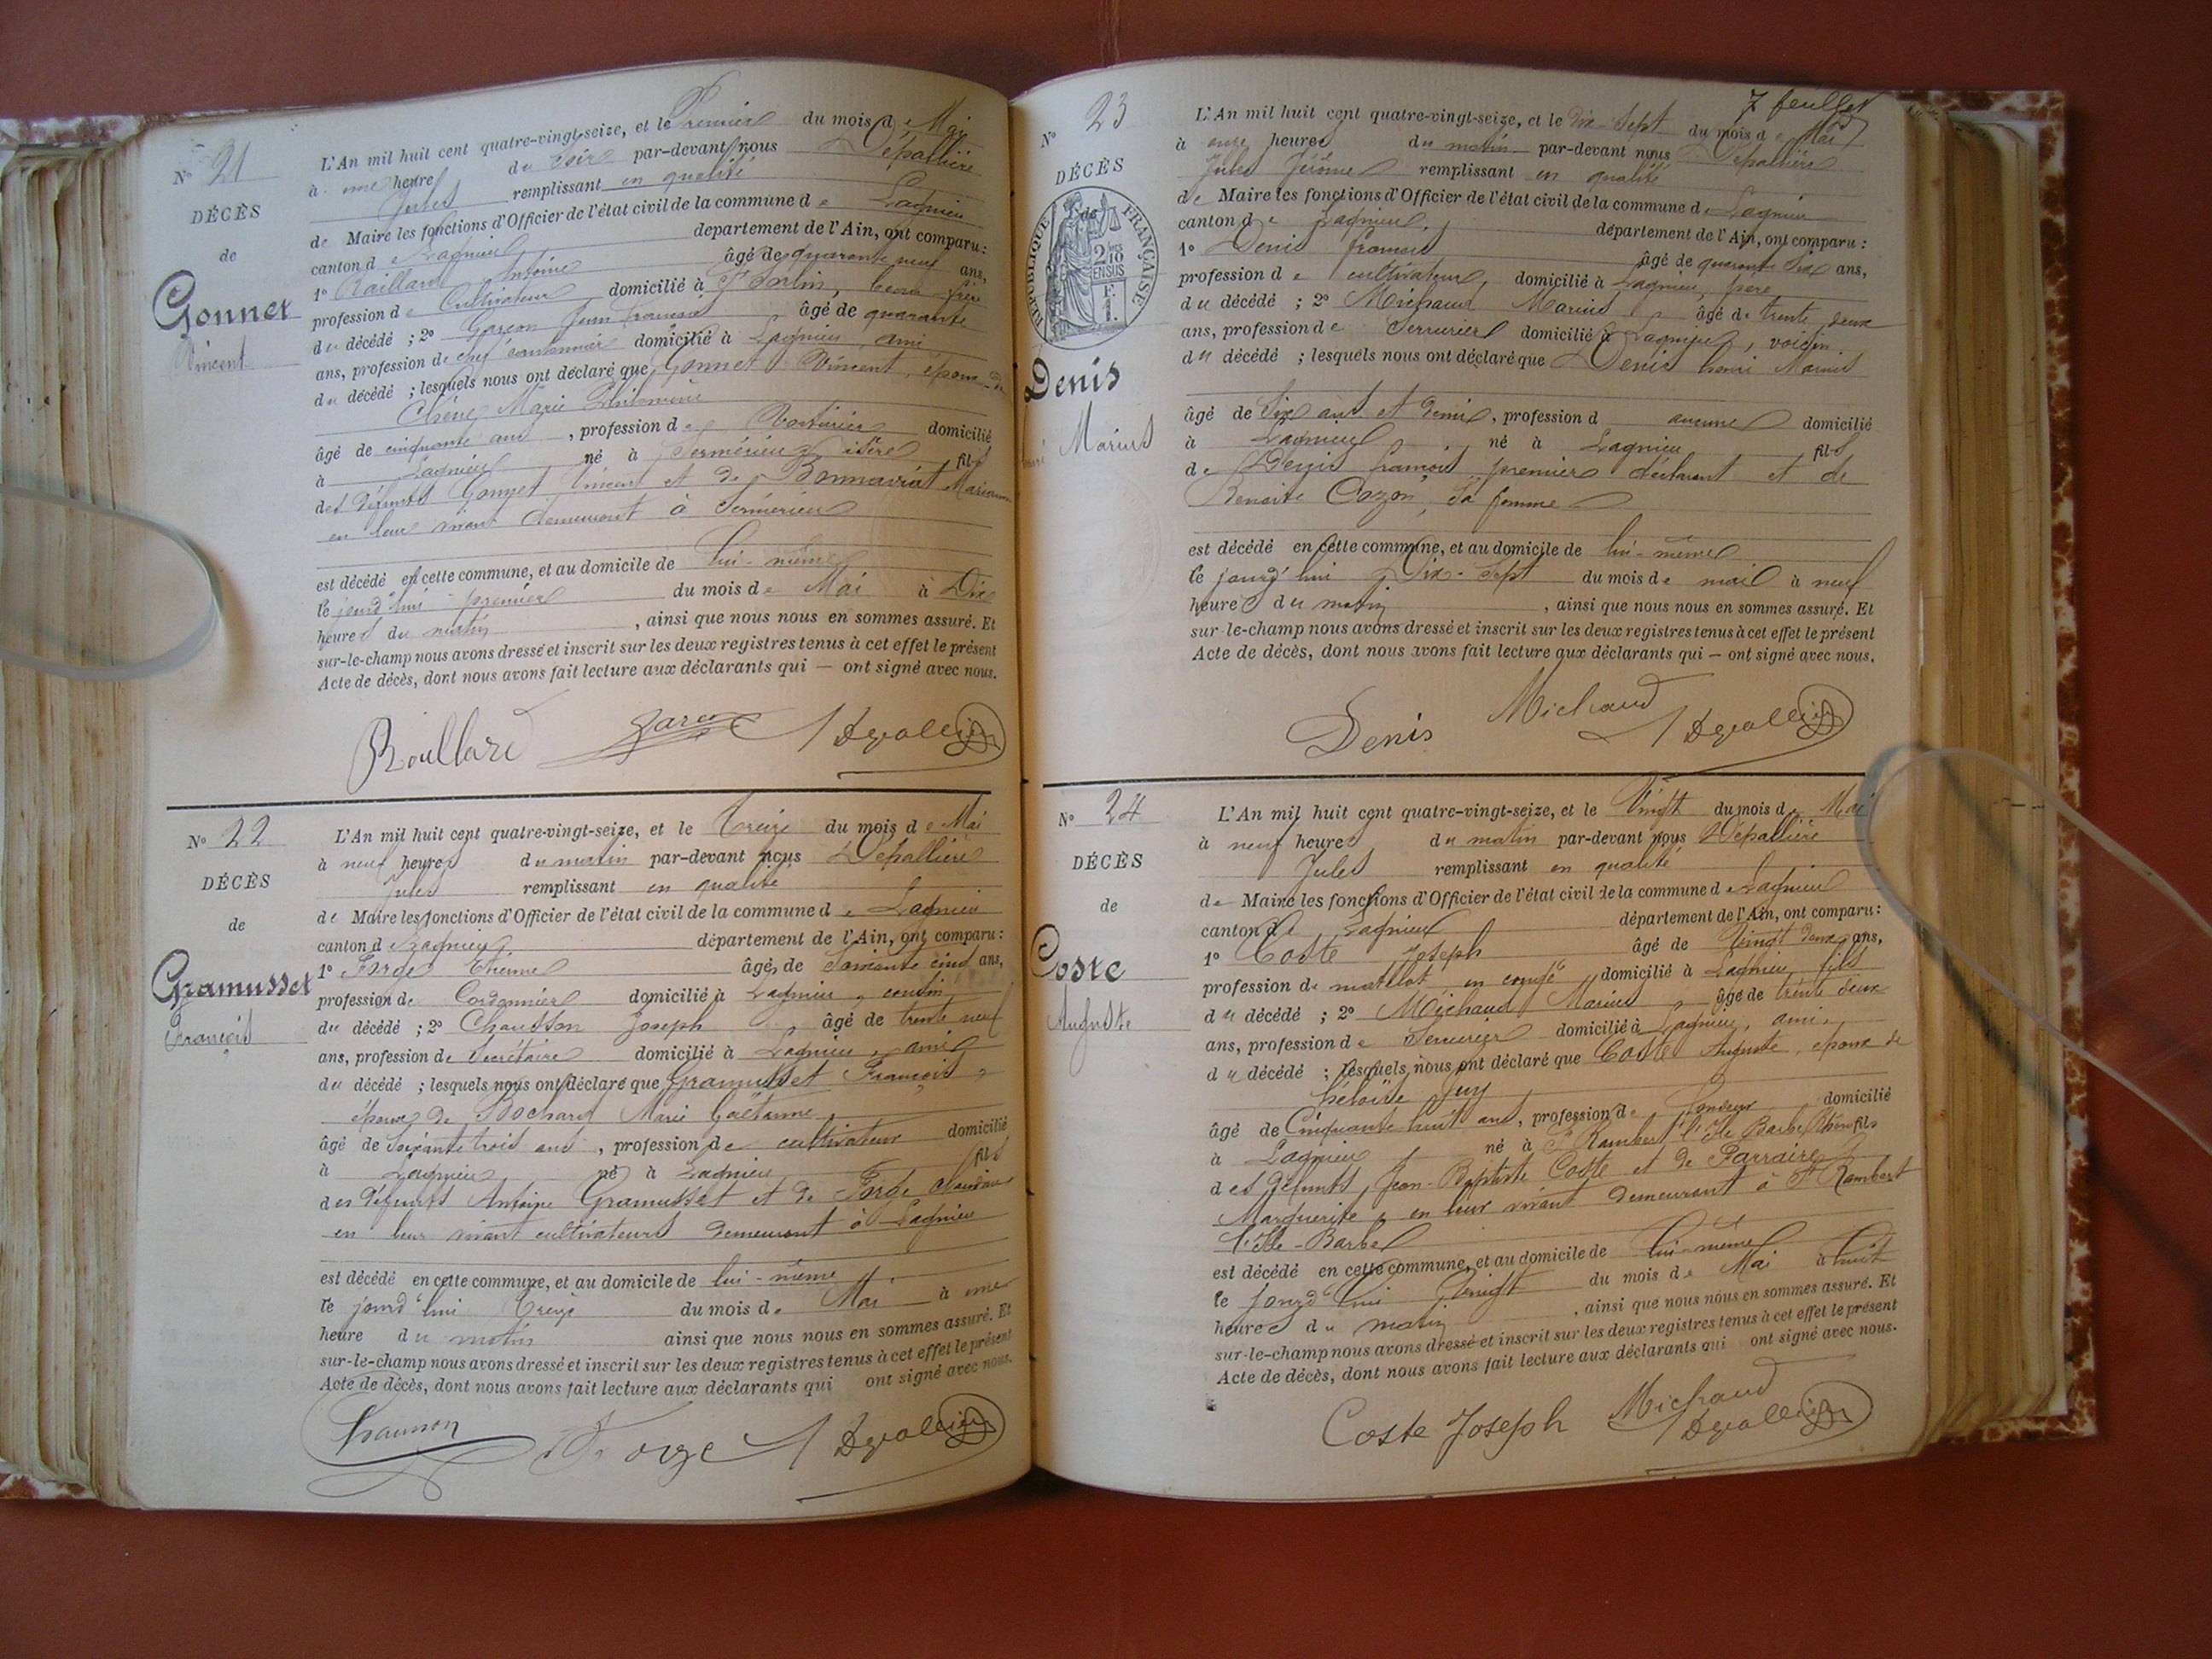 N° 21
DÉCÈS
de
Gonnet
Vincent
L'An mil huit cent quatre-vingt-seize, et le Premier du mois de Mai
à une heure du soir par-devant nous Dépallière
Jules remplissant en qualité
de Maire les fonctions d'Officier de l'état civil de la commune de Lagnieu
canton de Lagnieu département de l'Ain, ont comparu :
1° Raillard Antoine âgé de quarante neuf ans,
profession de Cultivateur domicilié à St Sorlin, beau-frère
du décédé ; 2° Garçon Jean François âgé de quarante
ans, profession de chef cantonnier domicilié à Lagnieu, ami
du décédé ; lesquels nous ont déclaré que Gonnet Vincent, époux de
Chêne Marie Philomène
âgé de cinquante ans, profession de Voiturier domicilié
à Lagnieu né à Sermérieu isère fils
des défunts Gonnet Vincent et de Bonnaviat Marianne
en leur vivant demeurant à Sermérieu
est décédé en cette commune, et au domicile de lui-même
le jourd'hui premier du mois de Mai à Dix
heures du matin, ainsi que nous nous en sommes assuré. Et
sur-le-champ nous avons dressé et inscrit sur les deux registres tenus à cet effet le présent
Acte de décès, dont nous avons fait lecture aux déclarants qui — ont signé avec nous.
Garçon
N° 22
DÉCÈS
de
Gramusset
François
L'An mil huit cent quatre-vingt-seize, et le Treize du mois de Mai
à neuf heures du matin par-devant nous Dépallière
Jules remplissant en qualité
de Maire les fonctions d'Officier de l'état civil de la commune de Lagnieu
canton de Lagnieu département de l'Ain, ont comparu :
1° Forge Etienne âgé de Soixante cinq ans,
profession de Cordonnier domicilié à Lagnieu, cousin
du décédé ; 2° Chausson Joseph âgé de trente neuf
ans, profession de Secrétaire domicilié à Lagnieu, ami
du décédé ; lesquels nous ont déclaré que Gramusset François,
époux de Bochard Marie Gaëtanne
âgé de Soixante trois ans, profession de cultivateur domicilié
à Lagnieu né à Lagnieu fils
des défunts Antoine Gramusset et de Forge Claudine
en leur vivant cultivateurs demeurant à Lagnieu
est décédé en cette commune, et au domicile de lui-même
le jourd'hui Treize du mois de Mai à une
heure du matin ainsi que nous nous en sommes assuré. Et
sur-le-champ nous avons dressé et inscrit sur les deux registres tenus à cet effet le présent
Acte de décès, dont nous avons fait lecture aux déclarants qui ont signé avec nous.
Chausson Forge
7 feuillet
N° 23
DÉCÈS
de
RÉPUBLIQUE FRANÇAISE
2/10 EN SUS
Denis
Henri Marius
L'An mil huit cent quatre-vingt-seize, et le Dix-Sept du mois de Mai
à onze heures du matin par-devant nous Dépallière
Jules Jérôme remplissant en qualité
de Maire les fonctions d'Officier de l'état civil de la commune de Lagnieu
canton de Lagnieu, département de l'Ain, ont comparu :
1° Denis François âgé de quarante Six ans,
profession de cultivateur, domicilié à Lagnieu, père
du décédé ; 2° Michaud Marius âgé de trente deux
ans, profession de Serrurier domicilié à Lagnieu, voisin
du décédé ; lesquels nous ont déclaré que Denis henri Marius
âgé de Six ans et demi, profession d aucune domicilié
à Lagnieu, né à Lagnieu fils
de Denis françois premier déclarant et de
Benoite Cozon, sa femme
est décédé en cette commune, et au domicile de lui-même
le jourd'hui Dix-Sept du mois de mai à neuf
heures du matin, ainsi que nous nous en sommes assuré. Et
sur-le-champ nous avons dressé et inscrit sur les deux registres tenus à cet effet le présent
Acte de décès, dont nous avons fait lecture aux déclarants qui — ont signé avec nous.
Denis Michaud
N° 24
DÉCÈS
de
Coste
Auguste
L'An mil huit cent quatre-vingt-seize, et le Vingt du mois de Mai
à neuf heures du matin par-devant nous Dépallière
Jules remplissant en qualité
de Maire les fonctions d'Officier de l'état civil de la commune de Lagnieu
canton de Lagnieu département de l'Ain, ont comparu :
1° Coste Joseph âgé de Vingt deux ans,
profession de matelot en congé domicilié à Lagnieu fils
du décédé ; 2° Michaud Marius, âgé de trente deux
ans, profession de Serrurier domicilié à Lagnieu, ami,
du décédé ; lesquels nous ont déclaré que Coste Auguste, époux de
héloïse
âgé de Cinquante huit ans, profession de domicilié
à Lagnieu né à St Rambert l'Ile Barbe Rhône fils
des défunts Jean-Baptiste Coste et de Parraire
Marguerite, en leur vivant demeurant à St Rambert
l'Ile-Barbe
est décédé en cette commune, et au domicile de lui-même
le jourd'hui Vingt du mois de Mai à huit
heures du matin, ainsi que nous nous en sommes assuré. Et
sur-le-champ nous avons dressé et inscrit sur les deux registres tenus à cet effet le présent
Acte de décès, dont nous avons fait lecture aux déclarants qui ont signé avec nous.
Coste Joseph Michaud